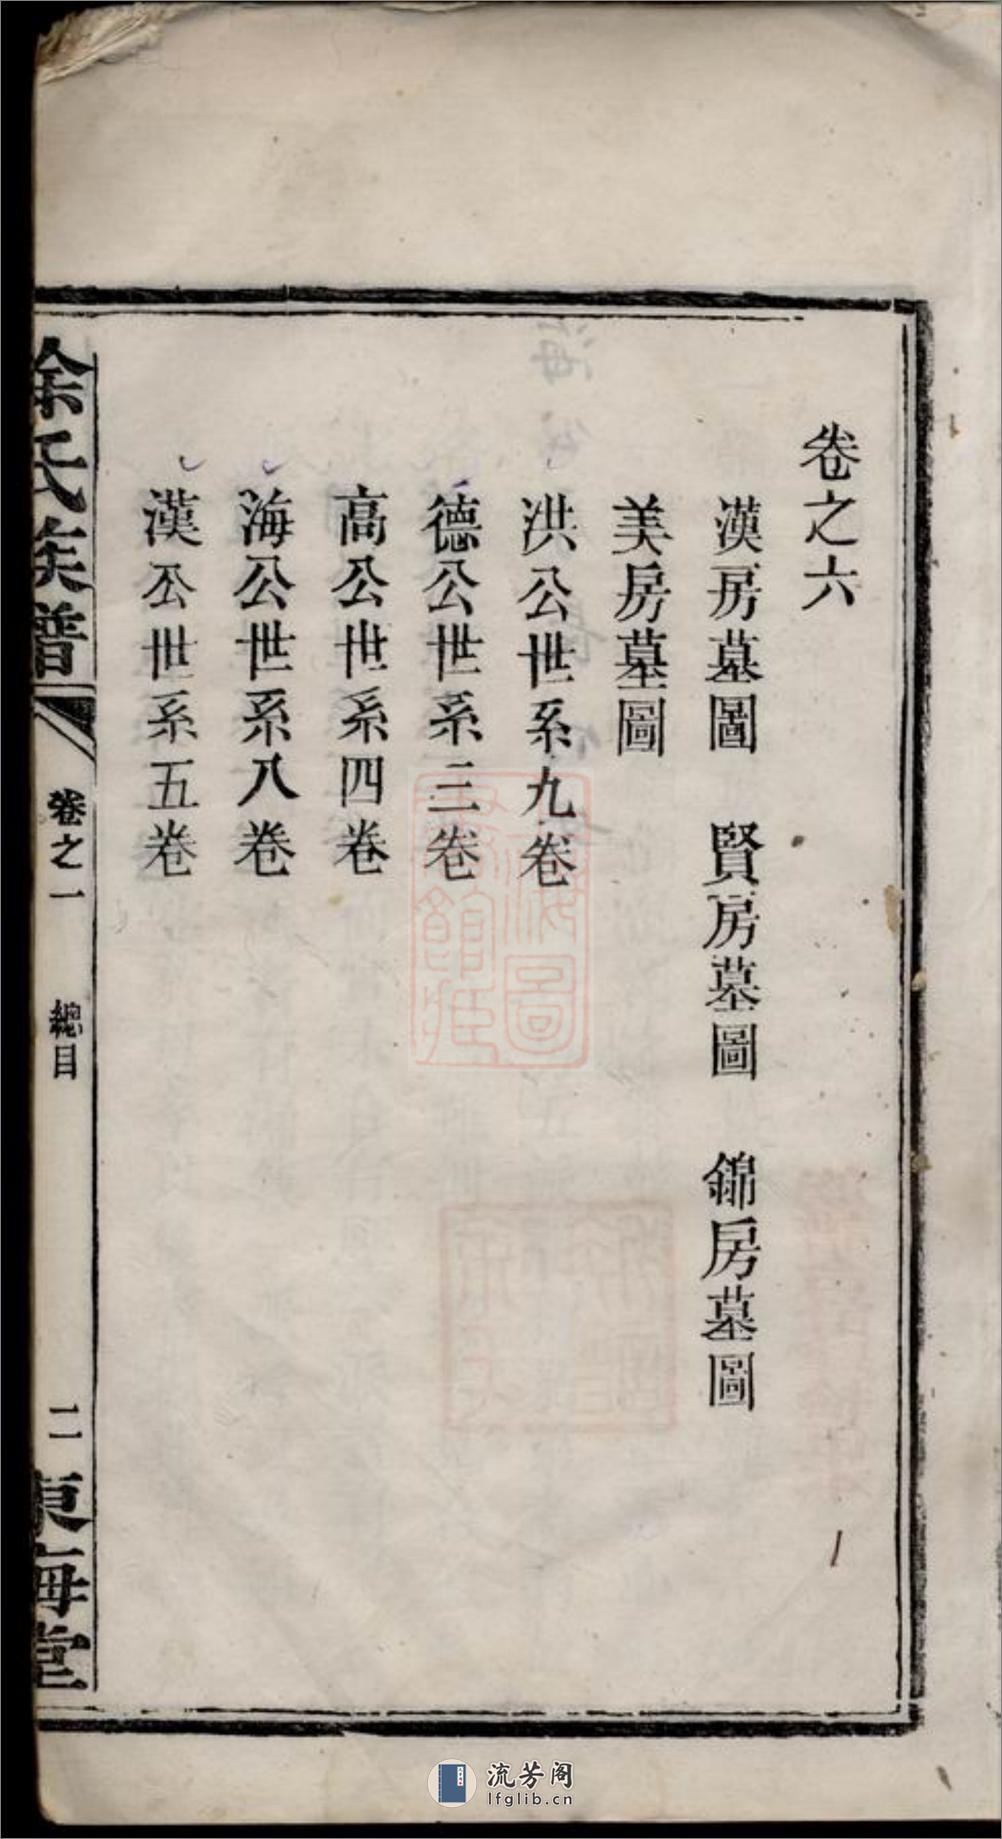 卷之六
漢房墓圖 賢房墓圖 錦房墓圖
美房墓圖
洪公世系九卷
德公世系三卷
高公世系四卷
海公世系八卷
漢公世系五卷
徐氏族譜 卷之一 總目 二 東海堂
流芳阁
lfglib.cn